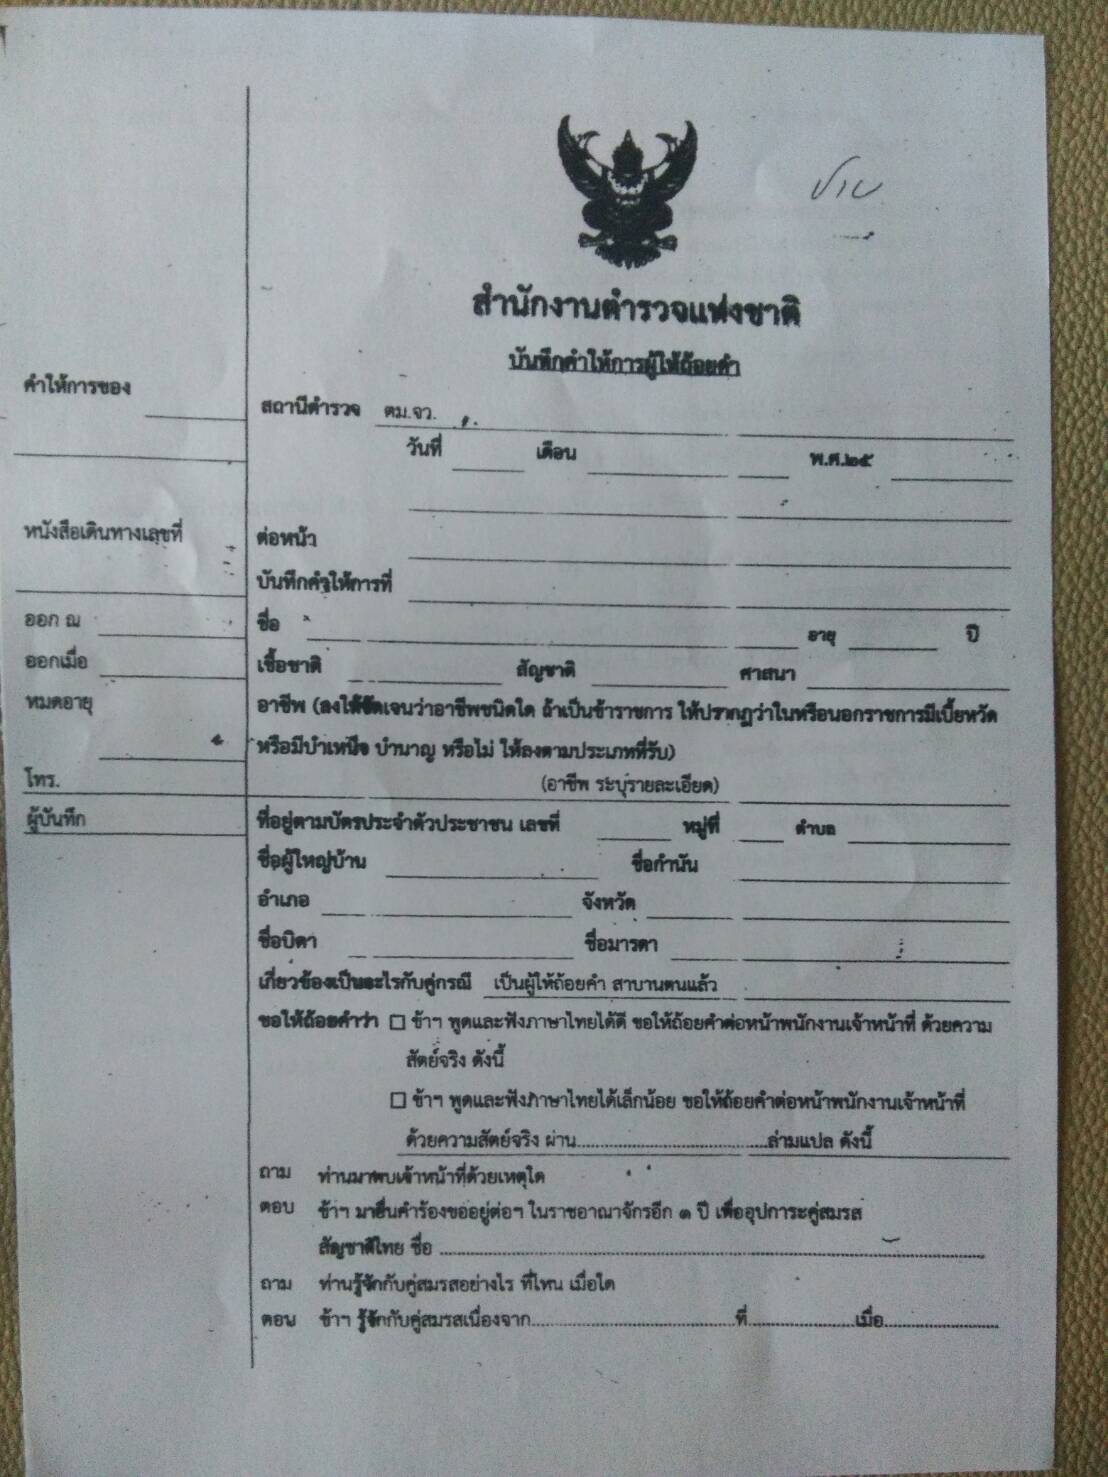 ชาย
สำนักงานตำรวจแห่งชาติ
บันทึกคำให้การผู้ให้ถ้อยคำ
คำให้การของ
สถานีตำรวจ ตม.จว.
วันที่ เดือน พ.ศ.๒๕
หนังสือเดินทางเลขที่
ต่อหน้า
บันทึกคำให้การที่
ออก ณ
ชื่อ อายุ ปี
ออกเมื่อ
เชื้อชาติ สัญชาติ ศาสนา
หมดอายุ
อาชีพ (ลงให้ชัดเจนว่าอาชีพชนิดใด ถ้าเป็นข้าราชการ ให้ปรากฏว่าในหรือนอกราชการมีเบี้ยหวัด
หรือมีบำเหน็จ บำนาญ หรือไม่ ให้ลงตามประเภทที่รับ)
โทร.
(อาชีพ ระบุรายละเอียด)
ผู้บันทึก
ที่อยู่ตามบัตรประจำตัวประชาชน เลขที่ หมู่ที่ ตำบล
ชื่อผู้ใหญ่บ้าน ชื่อกำนัน
อำเภอ จังหวัด
ชื่อบิดา ชื่อมารดา
เกี่ยวข้องเป็นอะไรกับคู่กรณี เป็นผู้ให้ถ้อยคำ สาบานตนแล้ว
ขอให้ถ้อยคำว่า ☐ ข้าฯ พูดและฟังภาษาไทยได้ดี ขอให้ถ้อยคำต่อหน้าพนักงานเจ้าหน้าที่ ด้วยความ
สัตย์จริง ดังนี้
☐ ข้าฯ พูดและฟังภาษาไทยได้เล็กน้อย ขอให้ถ้อยคำต่อหน้าพนักงานเจ้าหน้าที่
ด้วยความสัตย์จริง ผ่าน..............................ล่ามแปล ดังนี้
ถาม ท่านมาพบเจ้าหน้าที่ด้วยเหตุใด
ตอบ ข้าฯ มายื่นคำร้องขออยู่ต่อฯ ในราชอาณาจักรอีก ๑ ปี เพื่ออุปการะคู่สมรส
สัญชาติไทย ชื่อ ..............................
ถาม ท่านรู้จักกับคู่สมรสอย่างไร ที่ไหน เมื่อใด
ตอบ ข้าฯ รู้จักกับคู่สมรสเนื่องจาก..............................ที่...............เมื่อ...............